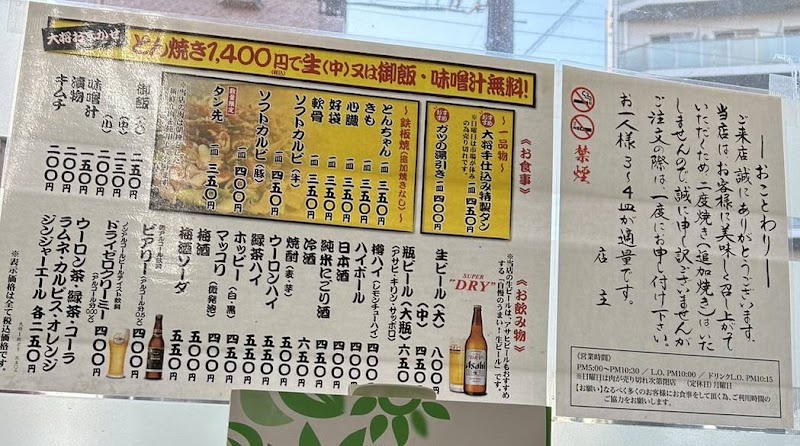 大将おまかせ
どん焼き1,400円で生(中)又は御飯・味噌汁無料!
(税込)
《お食事》
〜一品物〜
大将手仕込み特製タン 一皿 四五〇円
※日曜日は市場が休み
の為売り切れです。
ガツの湯引き 一皿 四〇〇円
〜鉄板焼(追加焼きなし)〜
とんちゃん 一皿 三五〇円
きも 一皿 三五〇円
心臓 一皿 三五〇円
好袋 一皿 三五〇円
軟骨 一皿 三五〇円
ソフトカルビ(牛) 一皿 五〇〇円
ソフトカルビ(豚) 一皿 四〇〇円
数量限定
タン先 一皿 三五〇円
御飯(大) 二五〇円
(中) 二三〇円
(小) 二〇〇円
味噌汁 一五〇円
漬物 二〇〇円
キムチ 二〇〇円
《お飲み物》
※当店の生ビールは、アサヒビールもおすすめ
する、「自慢のうまい!生ビール」です。
SUPER
"DRY"
Asahi
生ビール(大) 八〇〇円
(中) 五五〇円
瓶ビール(大瓶) 六五〇円
(アサヒ・キリン・サッポロ)
樽ハイ(レモンチューハイ) 四〇〇円
ハイボール
日本酒
純米にごり酒
冷酒
焼酎(麦・芋)
ウーロンハイ
緑茶ハイ
ホッピー(白・黒)
マッコリ(微発泡)
梅酒
梅酒ソーダ
ビアリー(アルコール分0.5%) 四〇〇円
ノンアルコールビールテイスト飲料
ドライゼロクリーミー 四〇〇円
(アルコール分0.00%)
ウーロン茶・緑茶・コーラ
ラムネ・カルピス・オレンジ
ジンジャーエール 各二五〇円
※表示価格は全て税込価格です。
禁煙
―おことわり―
ご来店誠にありがとうございます。
当店はお客様に美味しく召し上がて
いただくため、二度焼き(追加焼き)はいた
しませんので、誠に申し訳ございませんが
ご注文の際は、一度にお申し付け下さい。
お一人様 3〜4皿が適量です。
店主
《営業時間》
PM5:00〜PM10:30 / L.O. PM10:00 / ドリンクL.O. PM10:15
※日曜日は肉が売り切れ次第閉店 (定休日)月曜日
【お願い】なるべく多くのお客様にお食事をして頂く為、ご利用時間の
ご協力をお願いします。